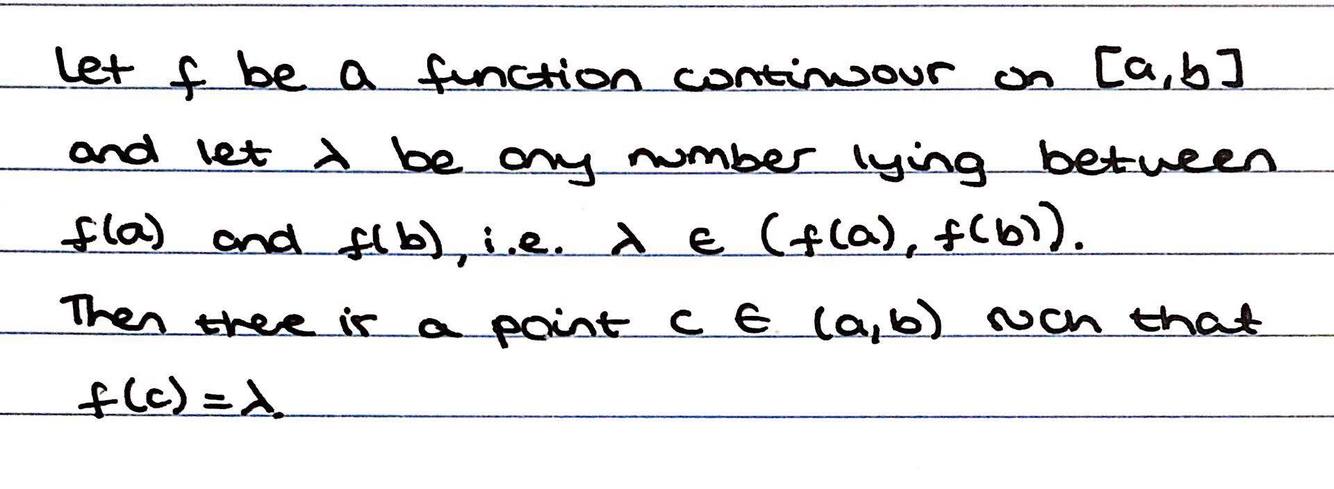 Let f be a function continuous on [a,b]
and let λ be any number lying between
f(a) and f(b), i.e. λ ∈ (f(a), f(b)).
Then there is a point c ∈ (a,b) such that
f(c) = λ.